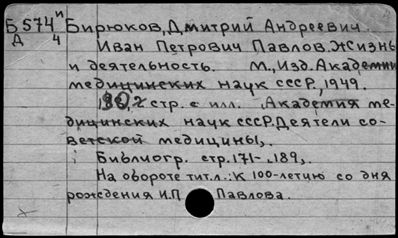 Б 574 и Бирюков, Дмитрий Андреевич.
Д 4 Иван Петрович Павлов. Жизнь
и деятельность. М., Изд. Академии
медицинских наук СССР, 1949.
стр. с илл. Академия ме-
дицинских наук СССР. Деятели со-
ветской медицины,.
Библиогр. стр. 171-189,.
На обороте тит. л.: К 100-летию со дня
рождения И.П. Павлова.